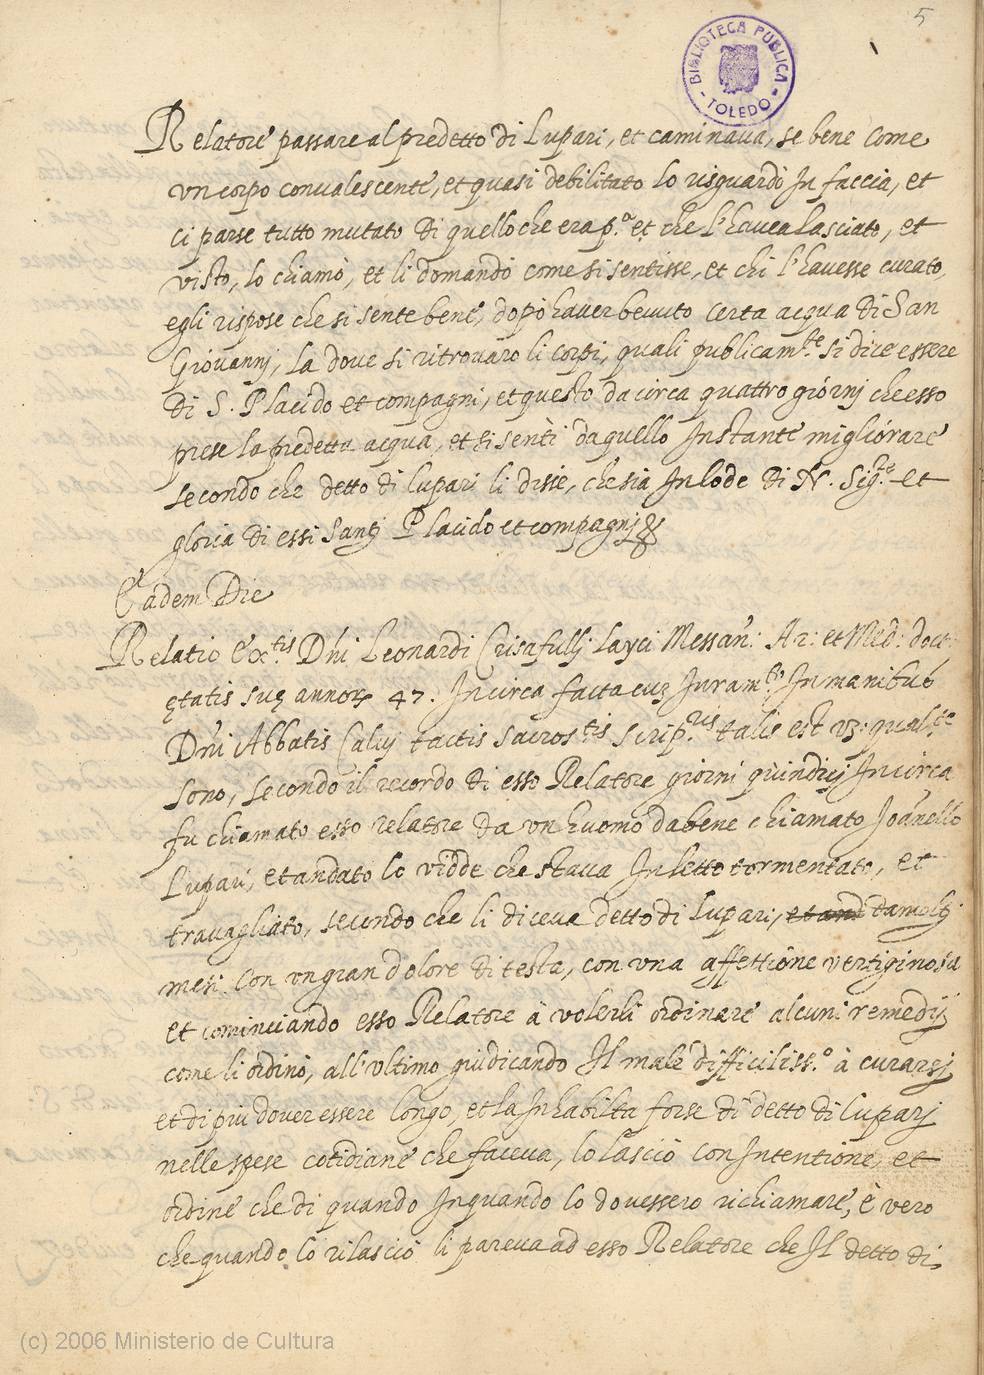 5
BIBLIOTECA PUBLICA
- TOLEDO -
Relatore passare al predetto di Lupari, et caminava, se bene come
un corpo convalescente, et quasi debilitato lo risguardò In faccia, et
ci parse tutto mutato di quello che era p.ª et che l'havea lasciato, et
visto, lo chiamò, et li domandò come si sentisse, et chi l'havesse curato,
egli rispose che si sente bene, dopò haver bevuto certa acqua di San
Giovannj, la dove si ritrovaro li corpi, quali publicam.te si dice essere
di S. Placido et compagni, et questo da circa quattro giornj che esso
prese la predetta acqua, et si sentì da quello Instante migliorare
secondo che detto di Lupari li disse, che sia In lode di N. Sig.re et
gloria di essi Santj Placido et compagnj
Eadem Die
Relatio Ex.tis Dñi Leonardi Crisafullj Layci Messan: Ar: et Med: doct:
ętatis suę annor 47: Incirca facta cuz Juram.to In manibus
Dñi Abbatis Calvj tactis sacros.tis scrip.ris talis est vz: qual.te
sono, secondo il recordo di esso Relatore giorni quindicj Incirca
fu chiamato esso relatore da un huomo da bene chiamato Joanello
Lupari, et andato lo vidde che stava In letto tormentato, et
travagliato, secondo che li diceva detto di Lupari, et and da moltj
mesi con un gran dolore di testa, con una affettione vertiginosa
et cominciando esso Relatore à volerli ordinare alcuni remedij
come li ordinò, all'ultimo giudicando Il male difficiliss.º à curarsj
et di più dover essere longo, et la Inhabilta forse di detto di Luparj
nelle spese cotidiane che faceva, lo lasciò con Intentione, et
ordine che di quando In quando lo dovessero richiamare, è vero
che quando lo rilasciò li pareva ad esso Relatore che Il detto di
(c) 2006 Ministerio de Cultura